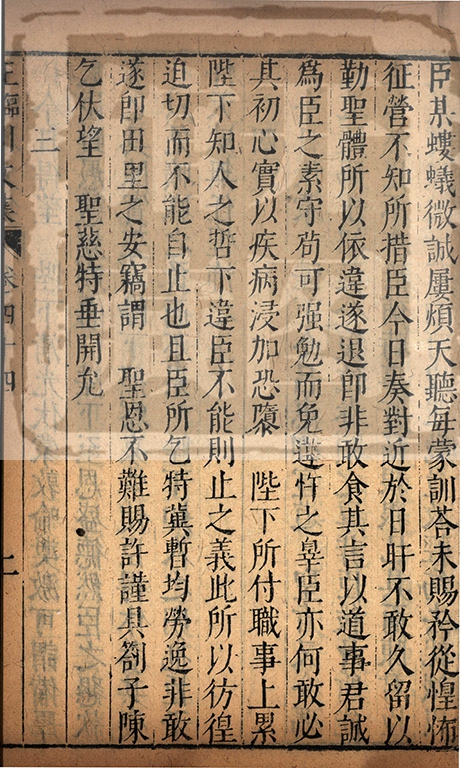 臣某螻蟻微誠屢煩天聽每蒙訓荅未賜矜從惶怖
征營不知所措臣今日奏對近於日旰不敢久留以
勤聖體所以依違遂退即非敢食其言以道事君誠
爲臣之素守苟可强勉而免違忤之辠臣亦何敢必
其初心實以疾病浸加恐隳 陛下所付職事上累
陛下知人之哲下違臣不能則止之義此所以彷徨
迫切而不能自止也且臣所乞特冀暫均勞逸非敢
遂即田里之安竊謂 聖恩不難賜許謹具劄子陳
乞伏望 聖慈特垂開允
王臨川文集 卷四十四